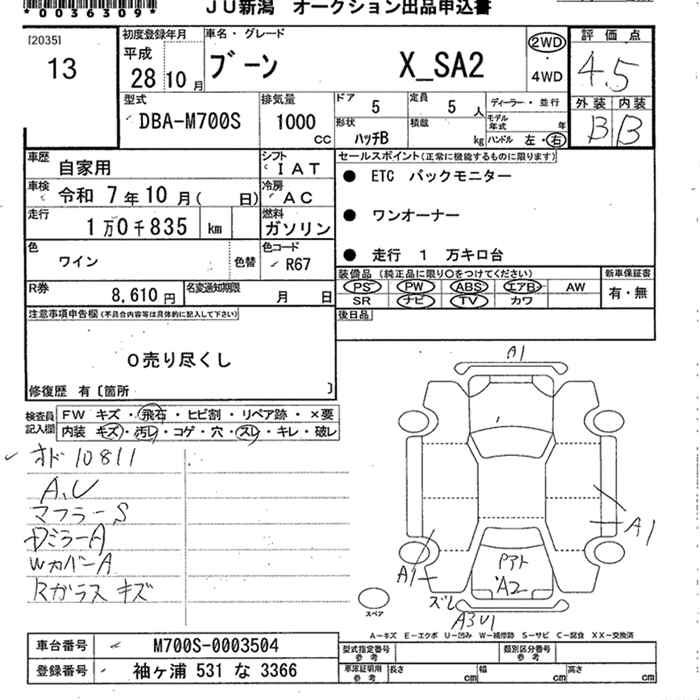 *0036309*
JU新潟 オークション出品申込書
I20351
13
初度登録年月
平成
28 10 月
車名・グレード
ブーン X_SA2
2WD
・
4WD
評価点
4.5
外装 内装
B B
型式
DBA-M700S
排気量
1000
cc
ドア 5
定員 5 人
ディーラー・並行
形状 ハッチB
積載 kg
モデル年式 年
ハンドル 左・右
車歴 自家用
シフト IAT
車検 令和 7年10月( 日)
冷房 AC
走行 1万0千835 km
燃料 ガソリン
色 ワイン 色替
色コード R67
R券 8,610円
名変通知期限 月 日
セールスポイント(正常に機能するものに限ります)
● ETC バックモニター
● ワンオーナー
● 走行 1 万キロ台
装備品(純正品に限り○をつけてください)
新車保証書
PS PW ABS エアB AW
SR ナビ TV カワ
有・無
後日品
注意事項申告欄(不具合内容等は具体的に記入して下さい)
0売り尽くし
修復歴 有〔箇所 〕
検査員記入欄
FW キズ・飛石・ヒビ割・リペア跡・×要
内装 キズ・汚レ・コゲ・穴・スレ・キレ・破レ
オド10811
A,U
マフラーS
Dミラー A
WカバーA
Rガラス キズ
A1
A1
A1
Pアト
A2
ズレ
A3U1
スペア
A-キズ E-エクボ U-凹み W-補修跡 S-サビ C-腐食 XX-交換済
車台番号 M700S-0003504
登録番号 袖ヶ浦 531 な 3366
型式指定番号参考
類別区分番号参考
車庫証明用参考
長さ cm
幅 cm
高さ cm